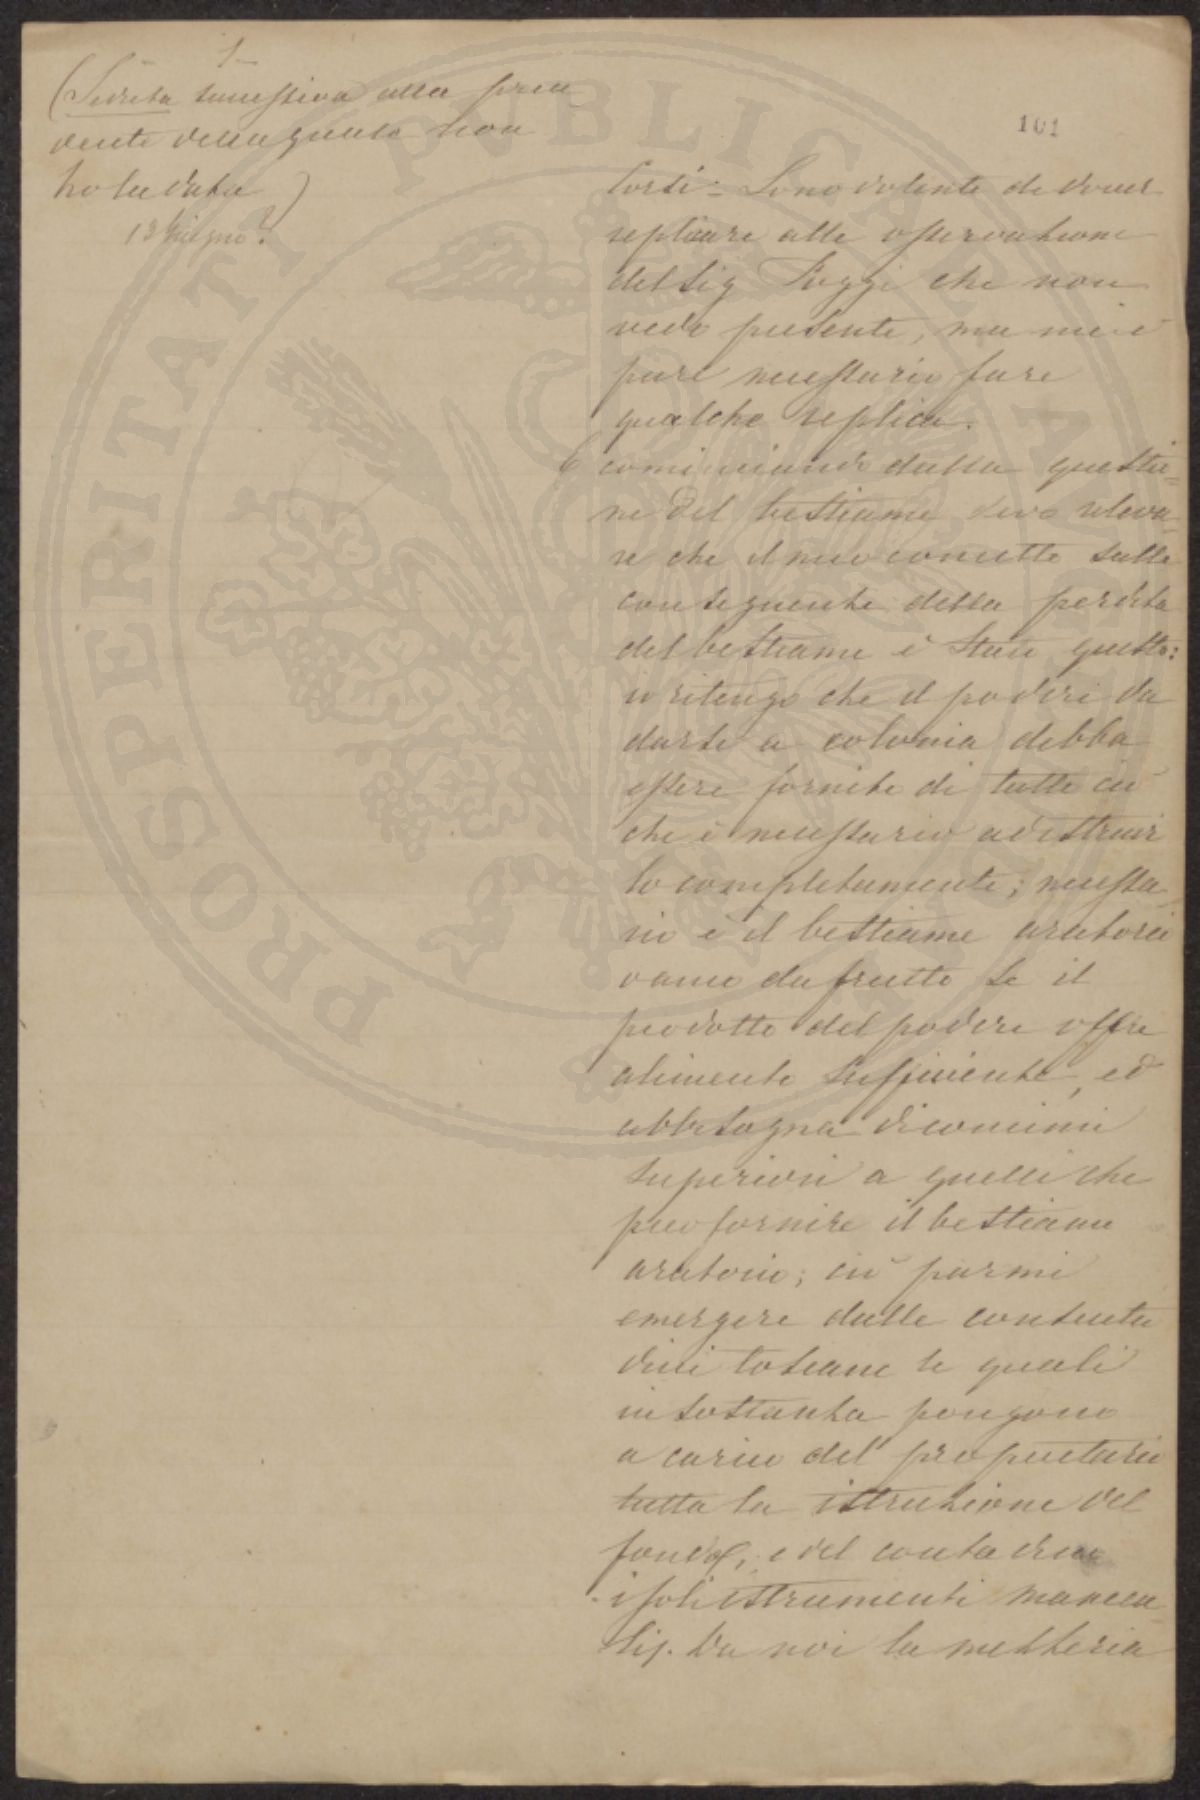 1
(Seduta successiva alla prece
dente della quale non
ho la data)
13 Giugno?
101
Corsi = Sono dolente di dover
replicare alle osservazioni
del Sig Poggi che non
vedo presente, ma mi è
pure necessario fare
qualche replica.
E cominciando dalla questio=
ne del bestiame devo rileva=
re che il mio concetto sulle
conseguenze della perdita
del bestiame è stato questo:
io ritengo che il podere da
darsi a colonia debba
essere fornito di tutto ciò
che è necessario ad istruir
lo completamente; necessa
rio è il bestiame aratorio
vano da frutto se il
prodotto del podere offre
alimento sufficiente, ed
abbisogna di concimi
superiori a quelli che
può fornire il bestiame
aratorio; ciò parmi
emergere dalle consuetu
dini toscane le quali
in sostanza pongono
a carico del proprietario
tutta la istruzione del
fondo, e del contadino
i soli istrumenti manua=
li. Da noi la mezzeria